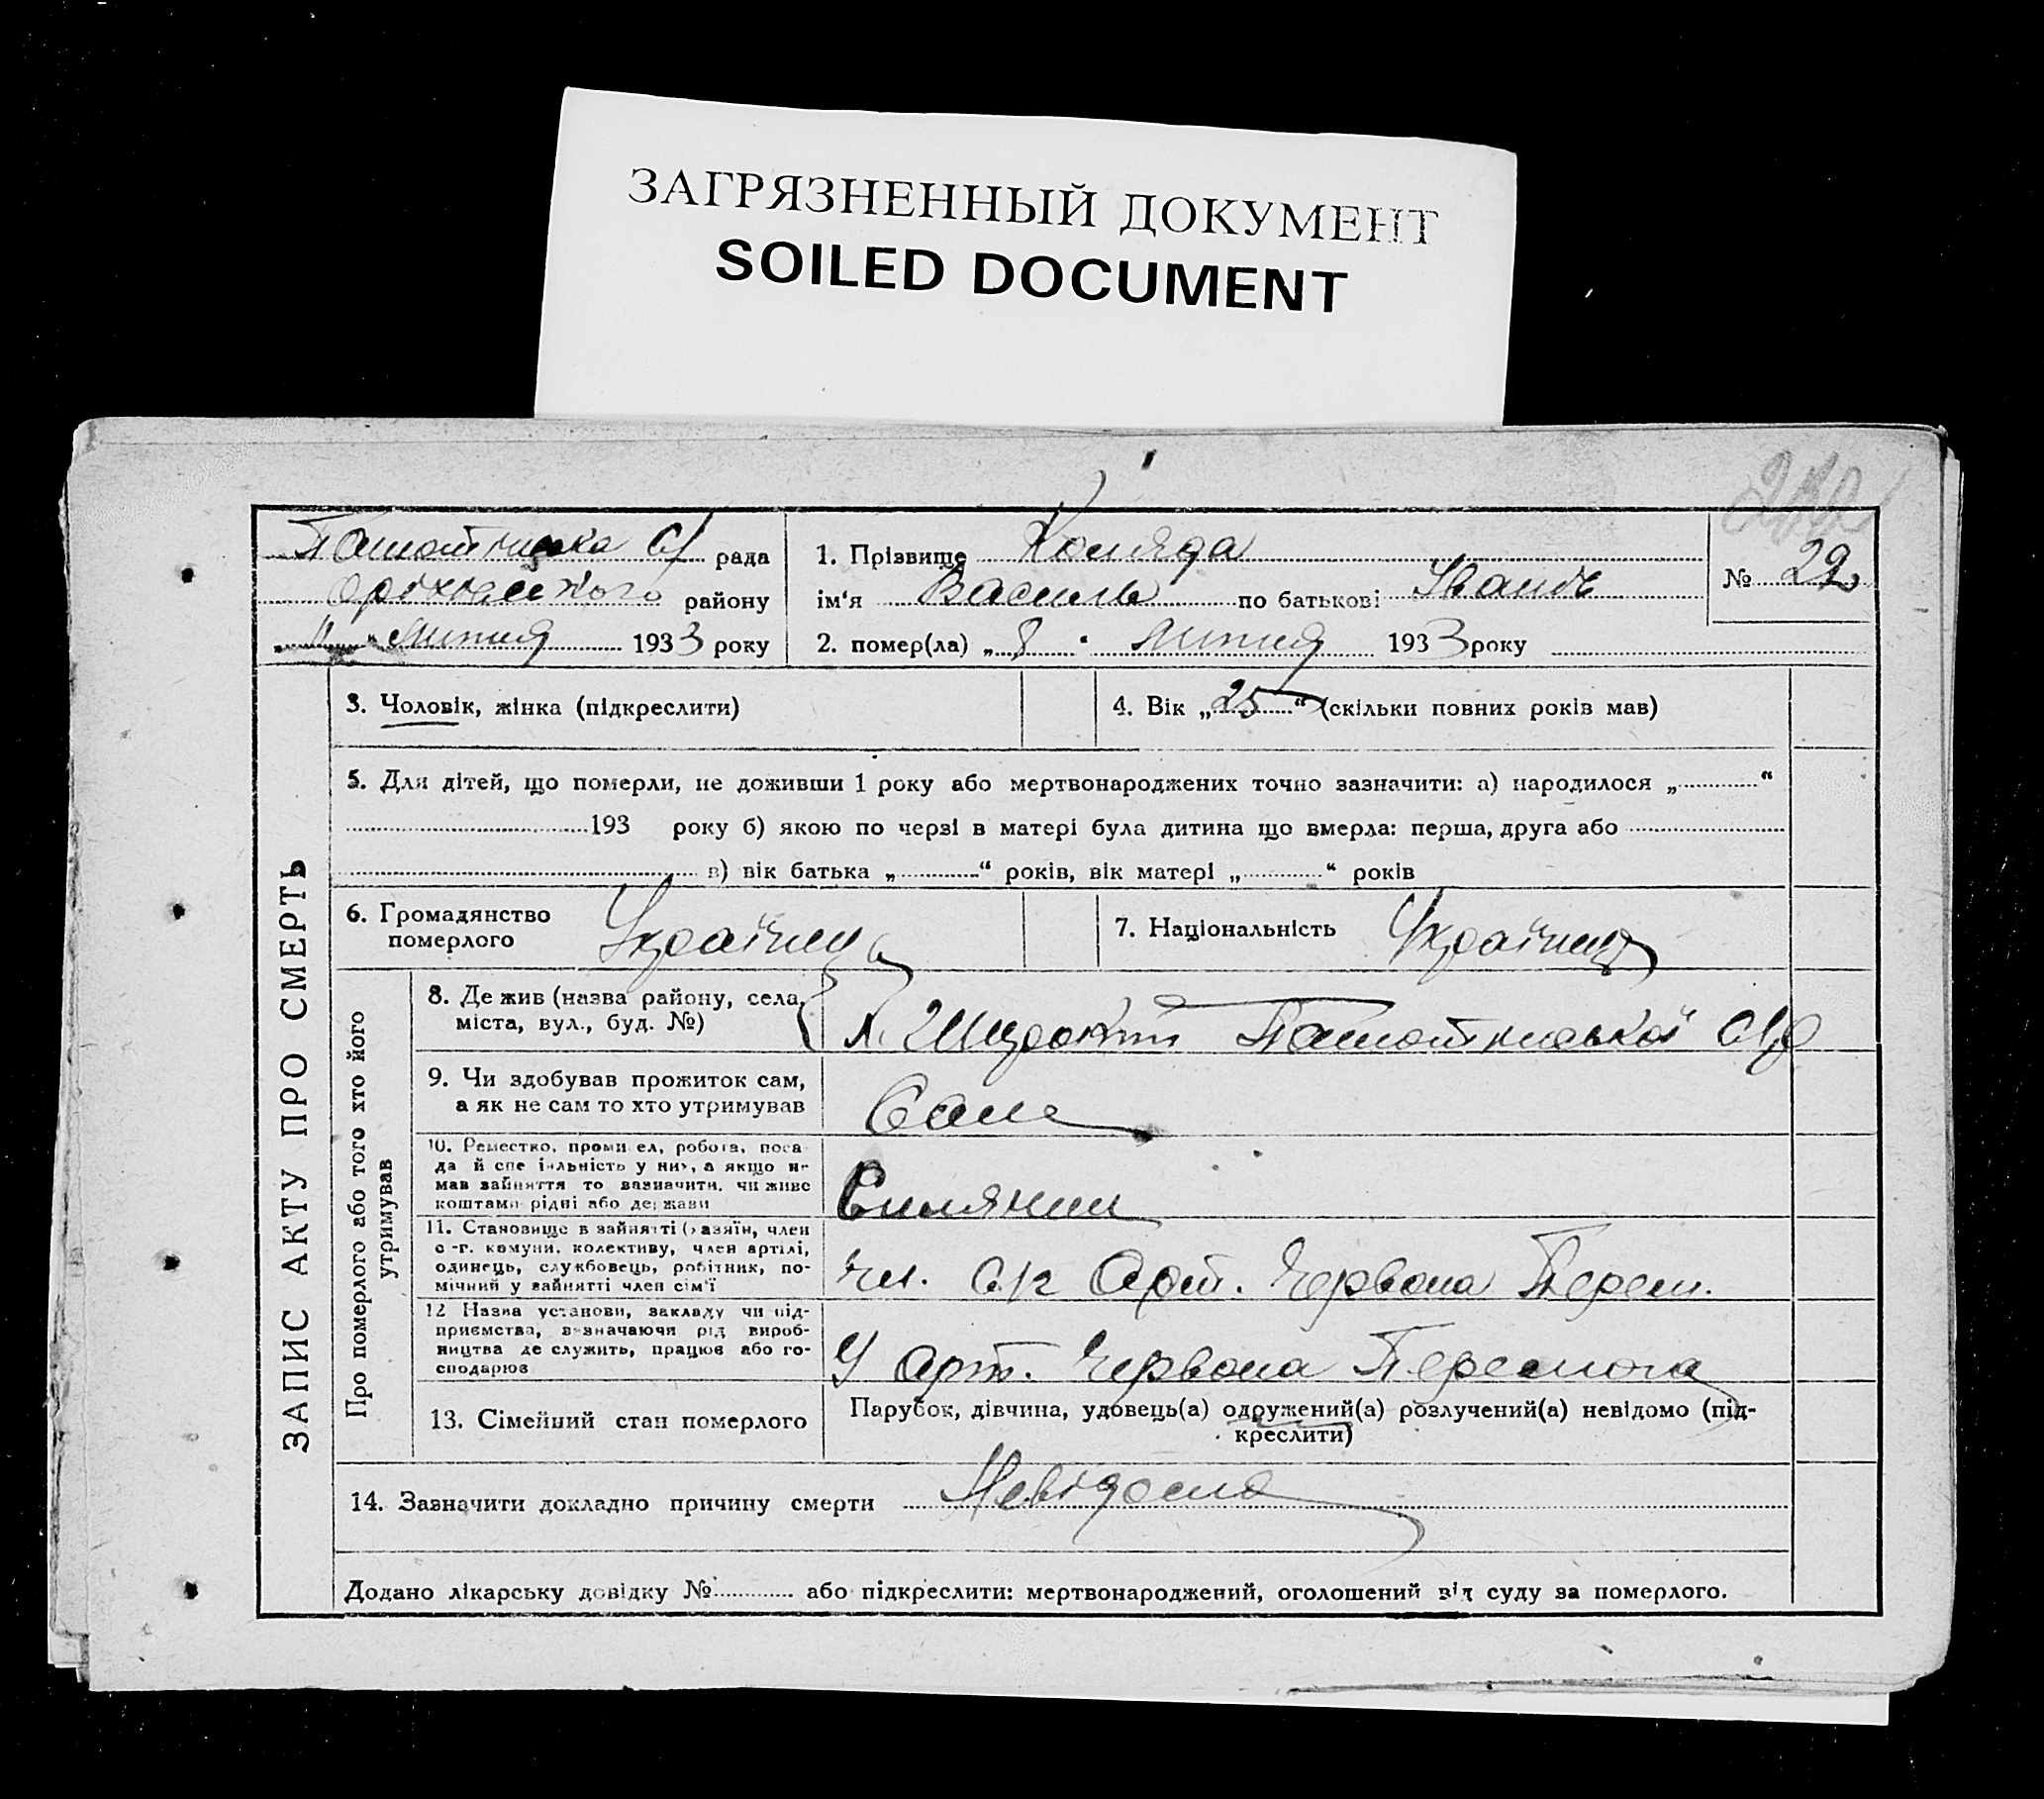 ЗАГРЯЗНЕННЫЙ ДОКУМЕНТ
SOILED DOCUMENT
рада
району
липня 1933 року
1. Прізвище Коляда
ім'я Василь по батькові Іванов
2. помер(ла) „ 8 " липня 1933 року
№ 29
ЗАПИС АКТУ ПРО СМЕРТЬ
3. Чоловік, жінка (підкреслити)
4. Вік „ 25 " (скільки повних років мав)
5. Для дітей, що померли, не доживши 1 року або мертвонароджених точно зазначити: а) народилося „ "
193 року б) якою по черзі в матері була дитина що вмерла: перша, друга або
в) вік батька „ " років, вік матері „ " років
6. Громадянство
померлого Українець
7. Національність Українець
Про померлого або того хто його
утримував
8. Де жив (назва району, села,
міста, вул., буд. №)
9. Чи здобував прожиток сам,
а як не сам то хто утримував
Сам
10. Ремество, промисел, робота, поса-
да й спеціяльність у них, а якщо не
мав зайняття то вазначити, чи живе
коштами рідні або держави
Силянин
11. Становище в зайнятті (хазяїн, член
с.-г. комуни, колективу, член артілі,
одинець, службовець, робітник, по-
мічний у зайнятті член сім'ї
чл. с/г Арт. Червона Перем.
12 Назва установи, закладу чи під-
приємства, визначаючи рід вироб-
ництва де служить, працює або го-
сподарює
У арт. Червона Перемога
13. Сімейний стан померлого
Парубок, дівчина, удовець(а) одружений(а) розлучений(а) невідомо (під-
креслити)
14. Зазначити докладно причину смерти Невідома
Додано лікарську довідку № або підкреслити: мертвонароджений, оголошений від суду за померлого.